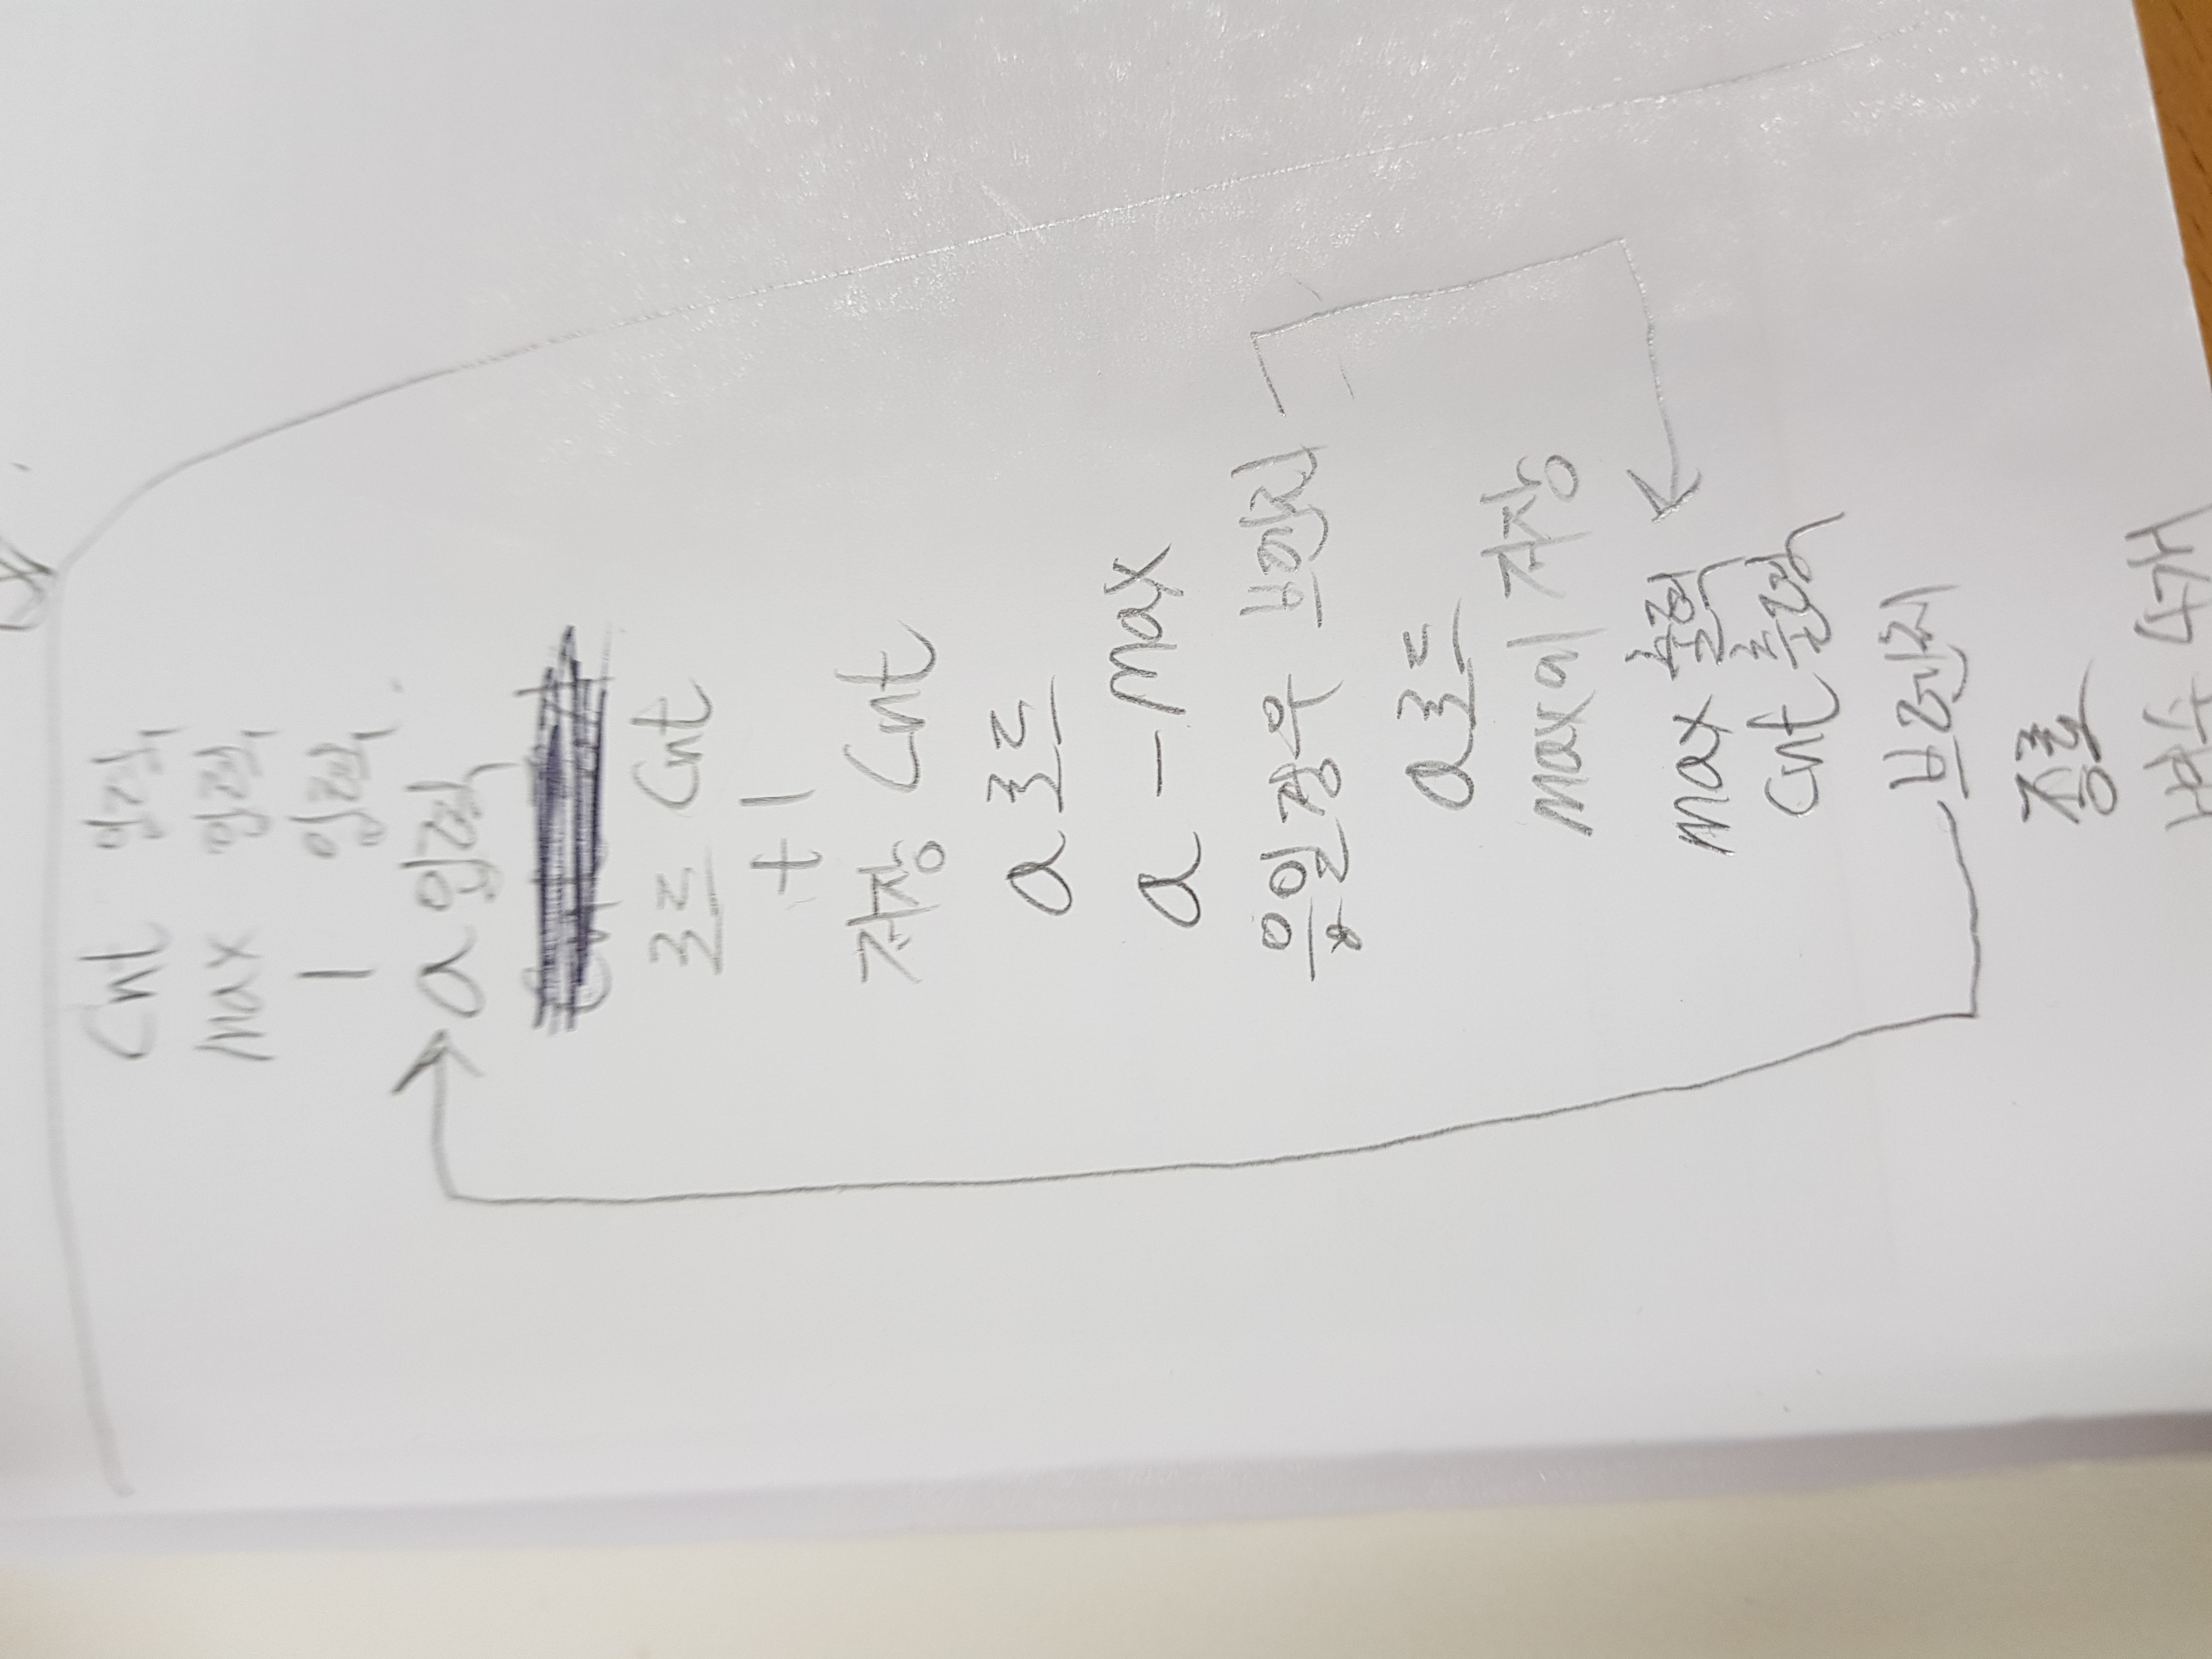 Cnt 입력
max 입력
1 입력
a 입력
로드 Cnt
+1
저장 Cnt
a 로드
a - max
음일경우 브렌치
a로드
max에 저장
max 출력
Cnt 출력
브렌치
종료
변수 4개